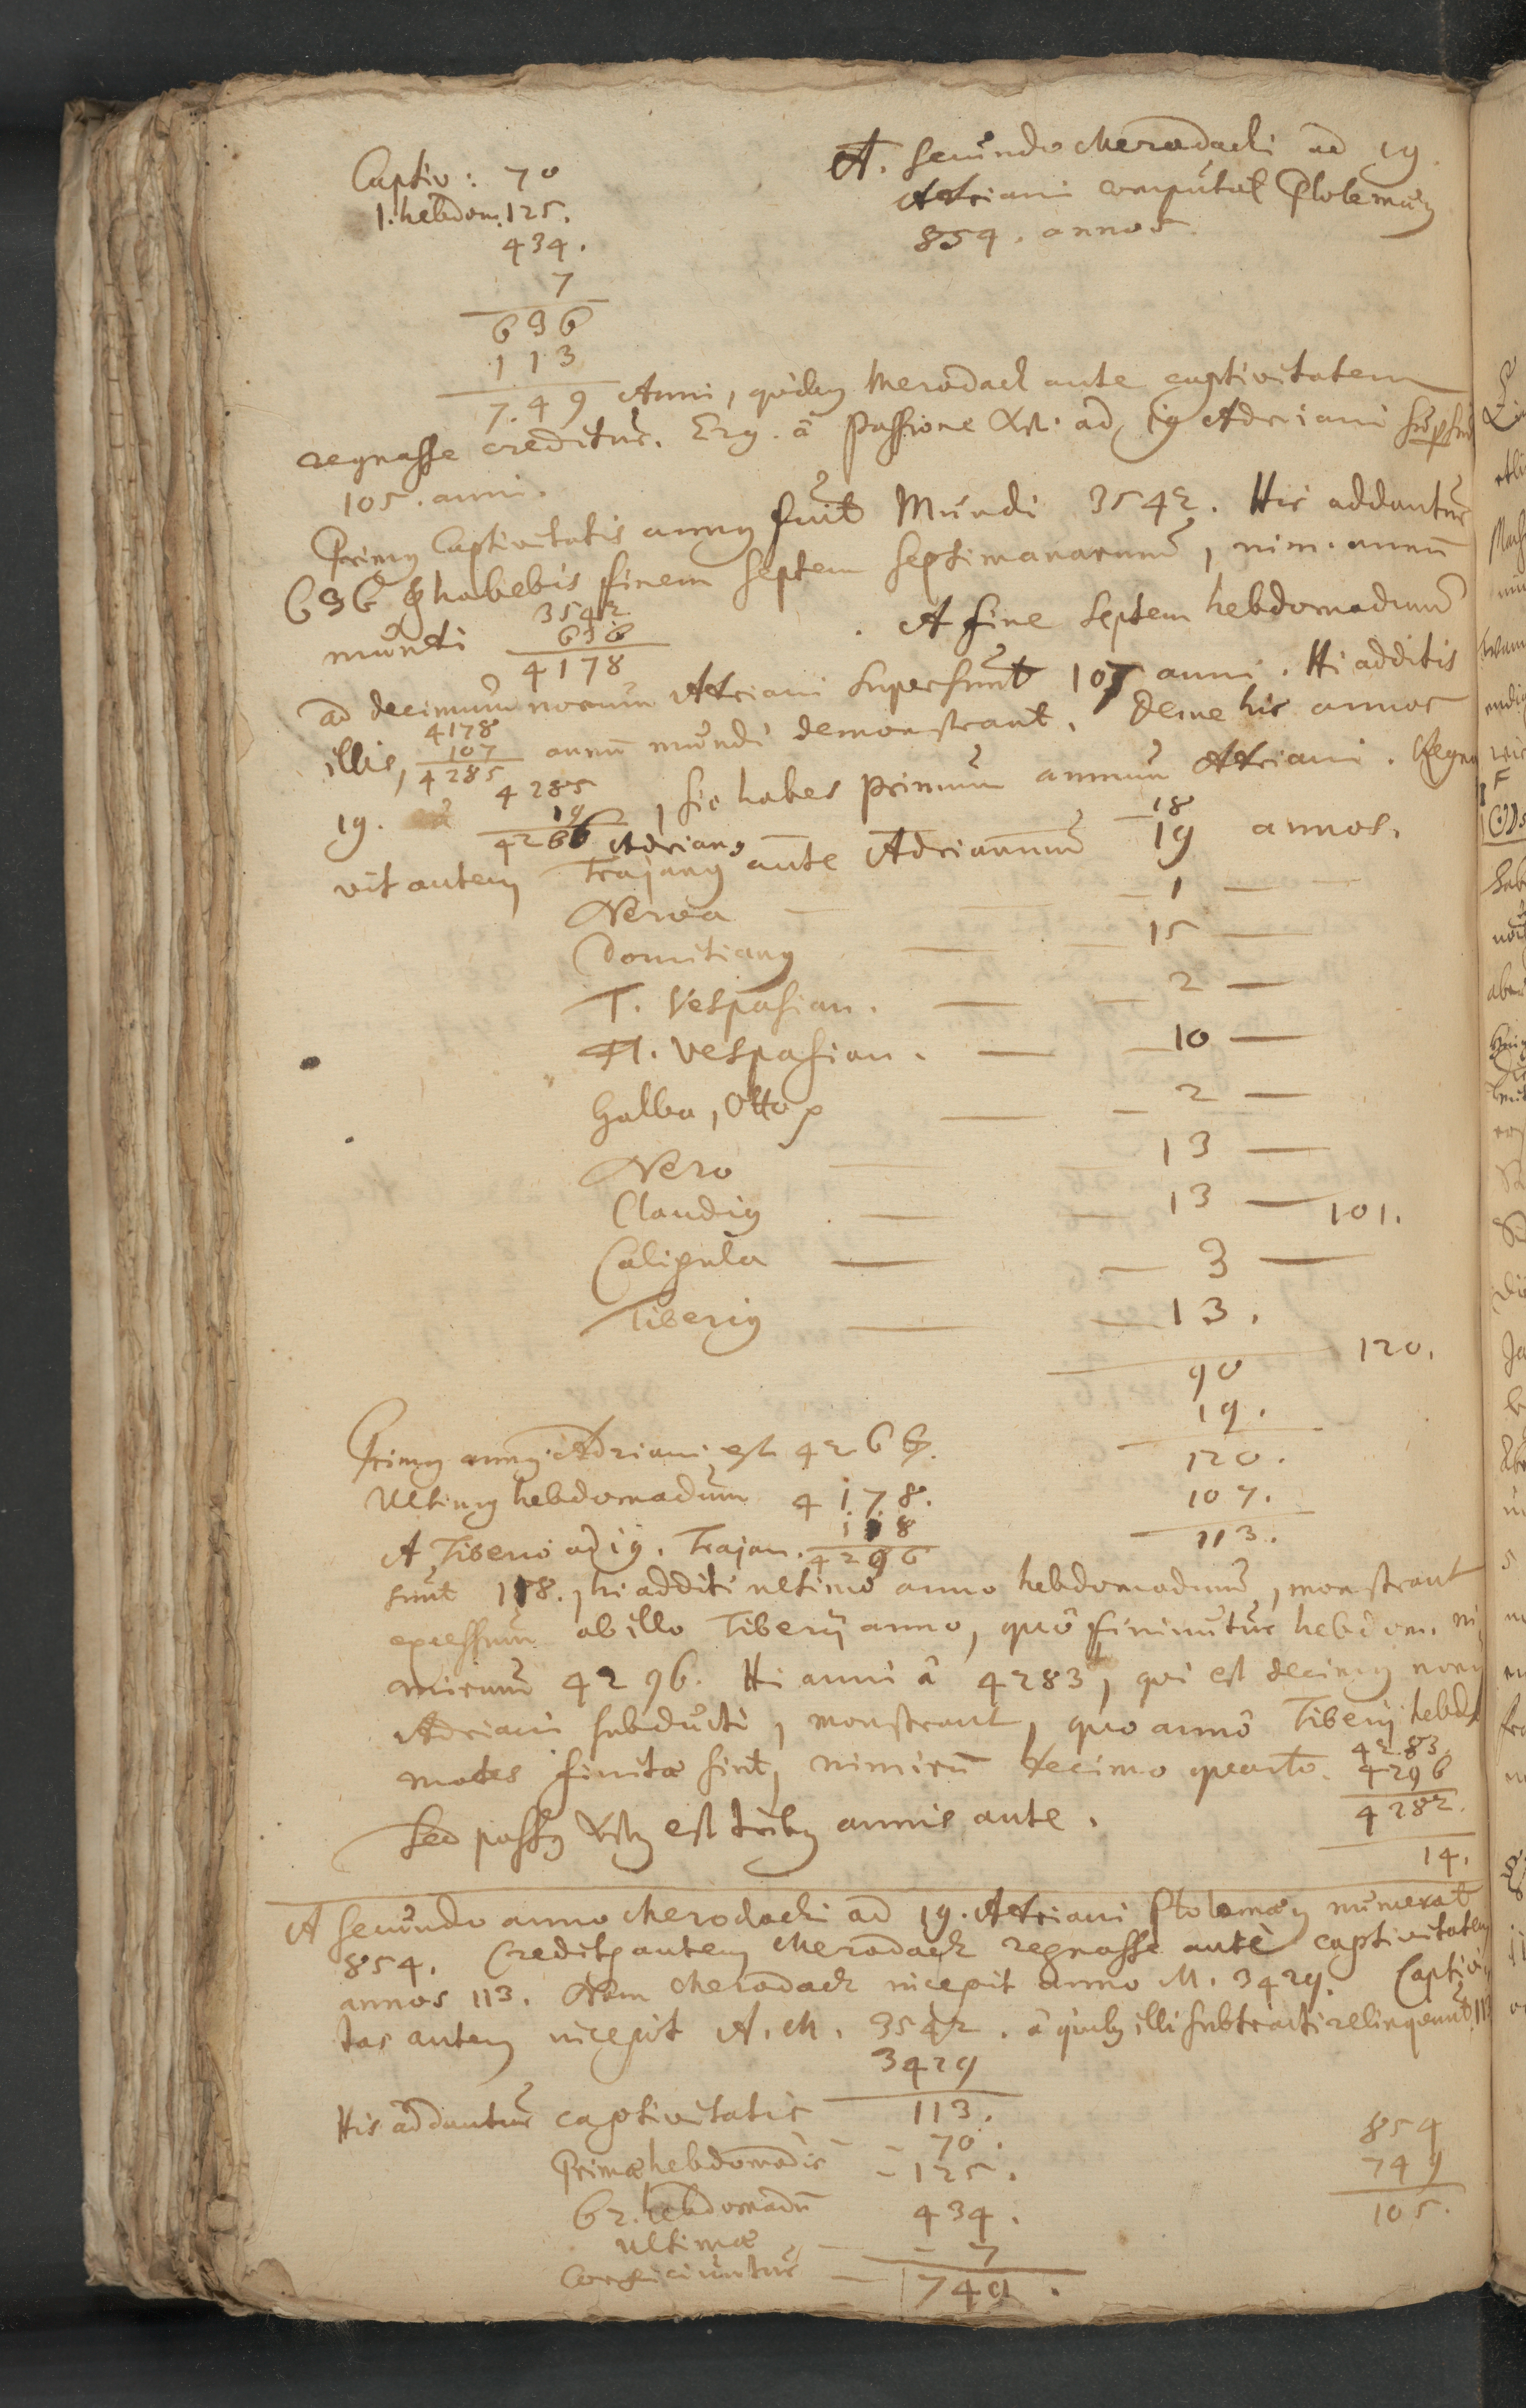 Captiv: 70
1. hebdom. 125.
434.
7
636
113
A. secundo Merodachi ad 19
Adriani computat Ptolemæus
854. annos.
749 Anni, quibus Merodach ante captivitatem
regnasse creditur. Erg. â passione Xsti ad 19 Adriani supersunt
105. anni.
Primus Captivitatis annus fuit Mundi 3542. His addantur
636 & habebis finem septem septimanarum, nim. annũ
mundi
3542
636
4178
. A fine septem hebdomadum
ad decimum nonum Adriani supersunt 107 anni. Hi additis
illis,
4178
107
4285
annũ mundi demonstrant. Deme his annos
19.
4285
19
4266
, sic habes primum annum Adriani. Regna
Adrianus
18
vit autem Trajanus ante Adrianum 19 annos.
Nerva — — 1 —
Domitianus — — 15 —
T. Vespasian. — — 2 —
Fl. Vespasian. — — 10 —
Galba, Otto — — 2 —
Nero — — 13 —
Claudius — — 13 — 101.
Caligula — — 3 —
Tiberius — — 13.
90 120.
19.
120.
107.
113.
Primus annus Adriani est 4266.
Ultimus hebdomadum 4178.
118
A Tiberio ad 19. Trajan. 4296
sunt 118., hi additi ultimo anno hebdomadum, monstrant
excessum ab illo Tiberij anno, quô finiuntur hebdom. ni
mirum 4296. Hi anni â 4283, qui est decimus nonus
Adriani subducti, monstrant, quo anno Tiberij hebdo
mades finitæ sint, nimirũ decimo quarto.
4283.
4296
4282.
14.
Sed passus Xstus est tribus annis ante.
A secundo anno Merodachi ad 19. Adriani Ptolemæus numerat
854. Creditur autem Merodach regnasse ante captivitatem
annos 113. Nam Merodach incepit anno M. 3429. Captivi-
tas autem incepit A. M. 3542. â quibus illi subtracti relinquunt 113
3429
113.
His addantur captivitatis - - 70.
Primæ hebdomadis - 125.
62. hebdomadũ 434.
ultimæ - - 7
conficiuntur — 749.
854
749
105.